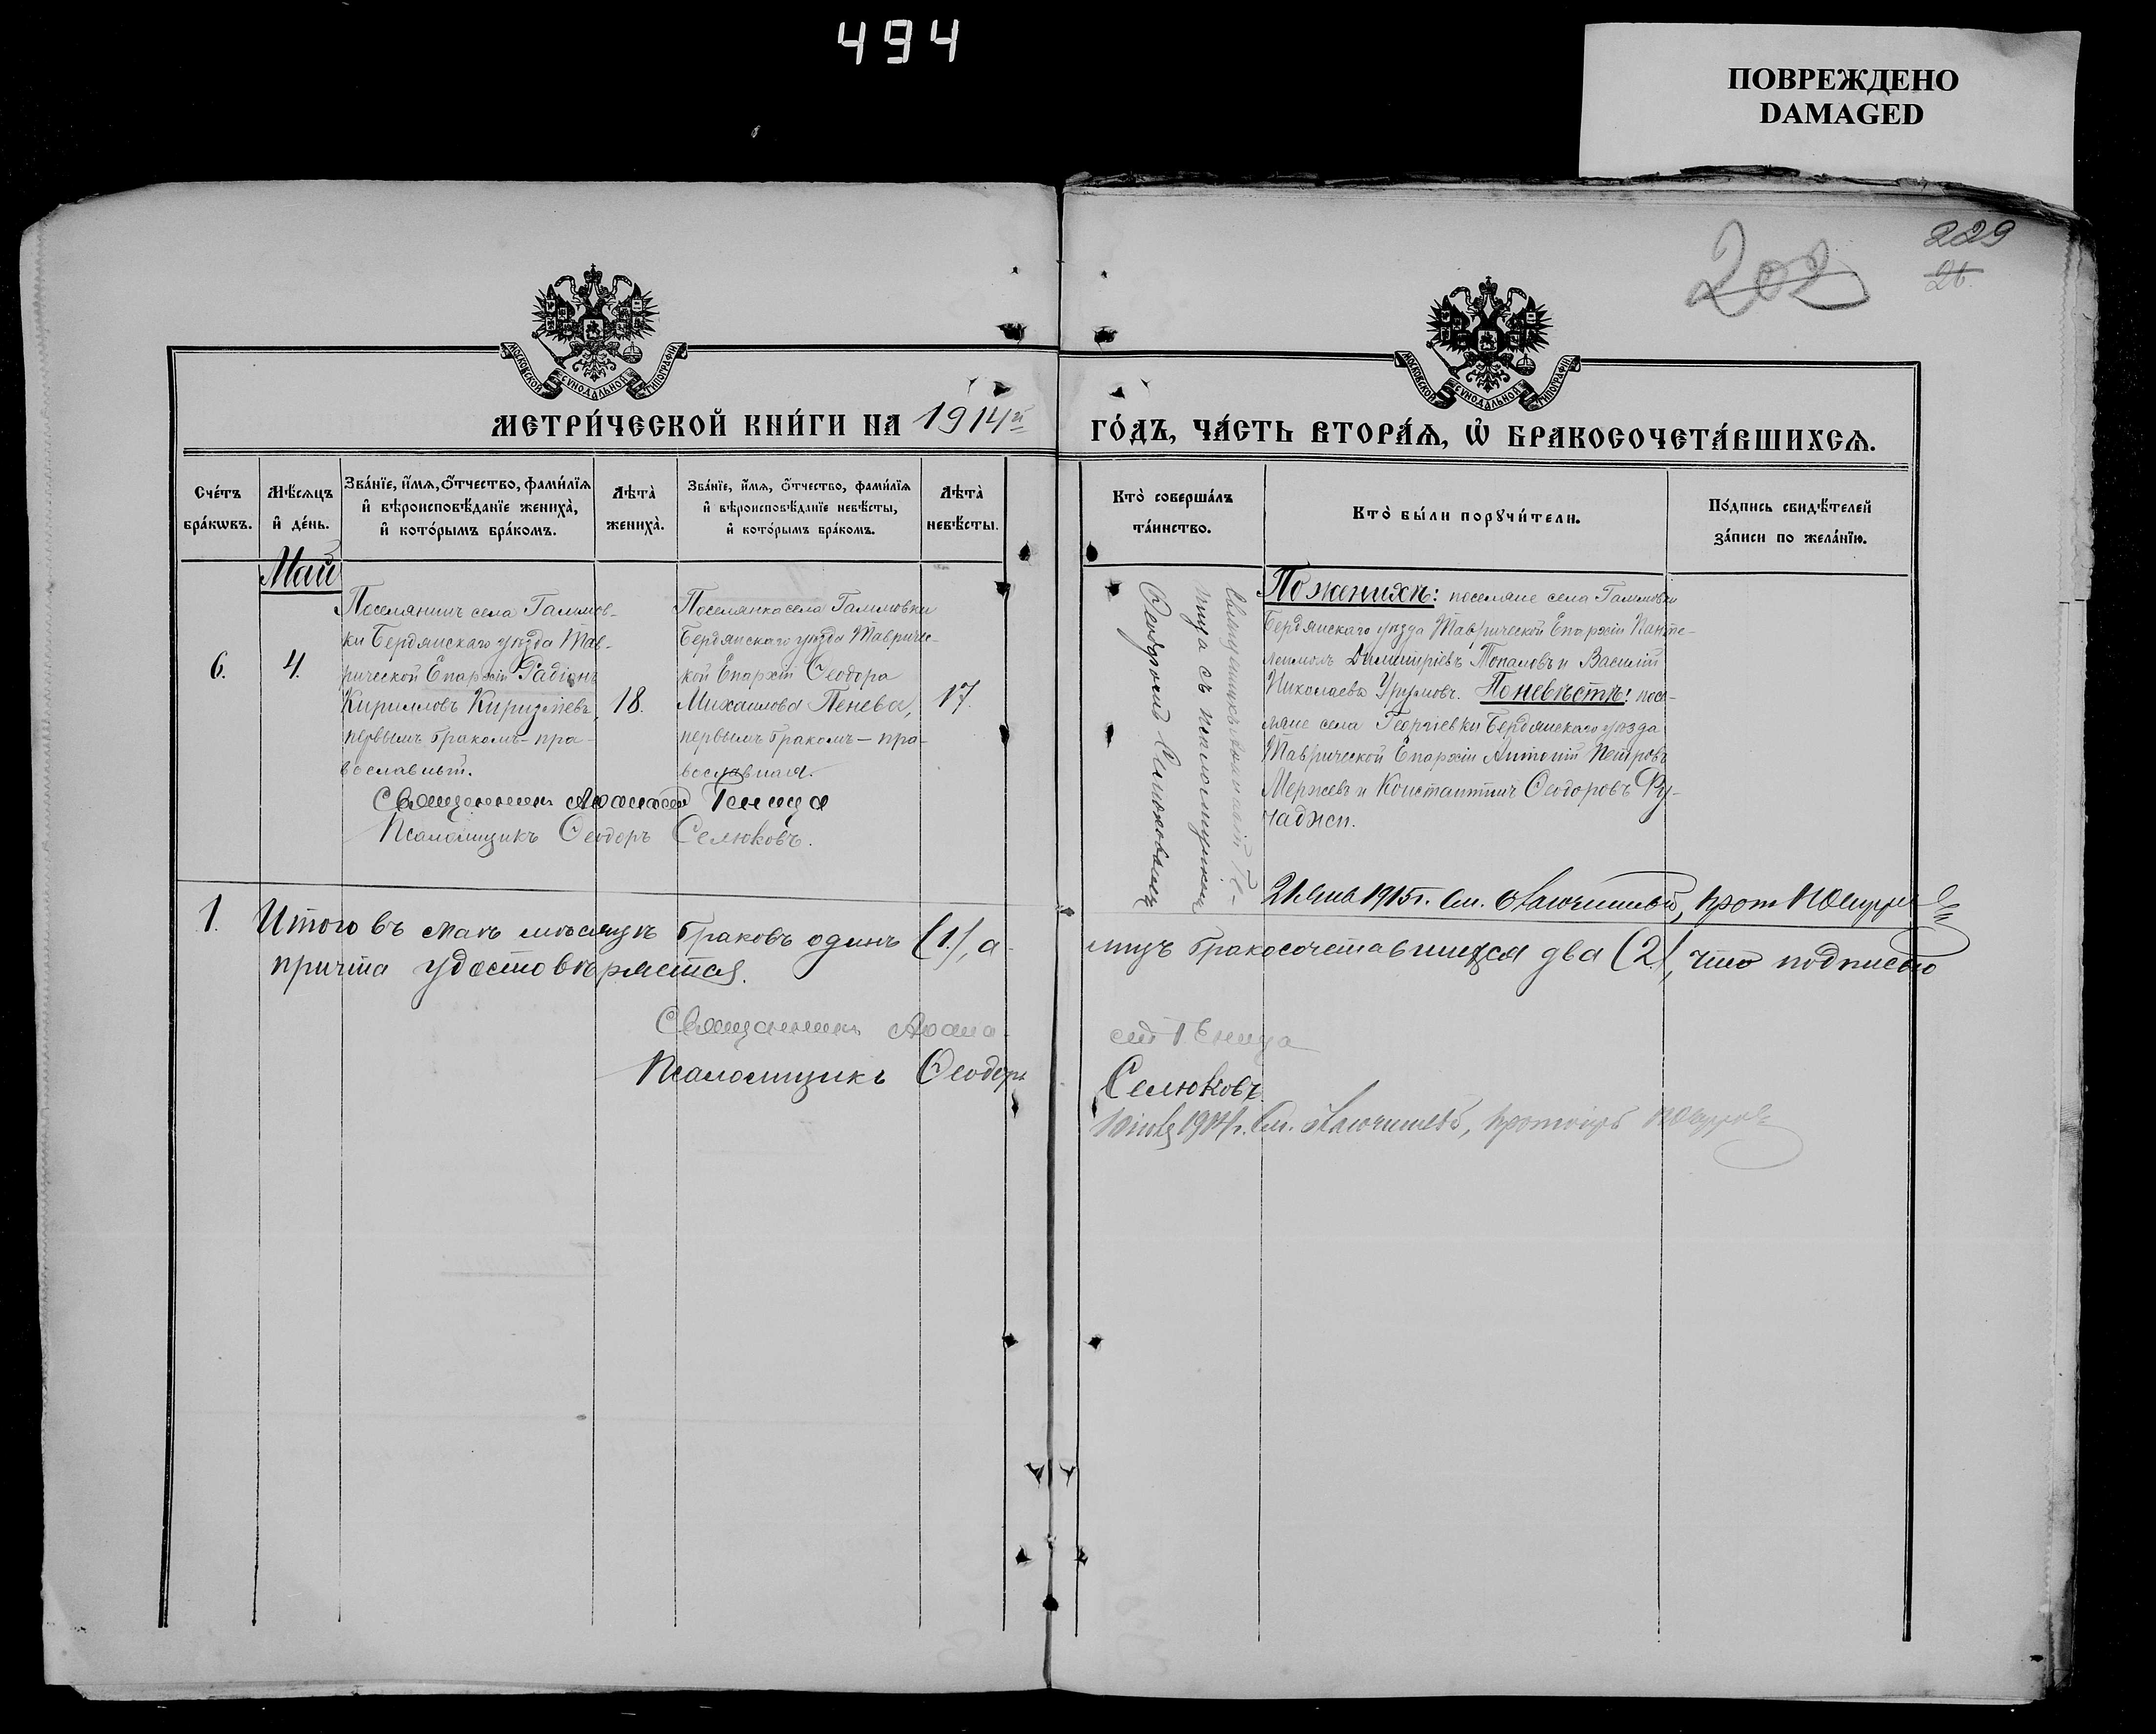 494
ПОВРЕЖДЕНО
DAMAGED
229
202
26.
МОСКОВСКОЙ СѴНОДАЛЬНОЙ ТИПОГРАФІИ
МОСКОВСКОЙ СѴНОДАЛЬНОЙ ТИПОГРАФІИ
МЕТРИ́ЧЕСКОЙ КНИ́ГИ НА 1914й
ГО́ДЪ, ЧА́СТЬ ВТОРА́Ѧ, Ѡ҆ БРАКОСОЧЕТА́ВШИХСѦ.
Сче́тъ
бра́кѡвъ.
Мѣ́сяцъ
и҆ де́нь.
Зва́нїе, и҆́мѧ, ѻ҆́тчество, фами́лїѧ
и҆ вѣроисповѣ́данїе жениха̀,
и҆ кото́рымъ бра́комъ.
Лѣта̀
жениха̀.
Зва́нїе, и҆́мѧ, ѻ҆́тчество, фами́лїѧ
и҆ вѣроисповѣ́данїе невѣ́сты,
и҆ кото́рымъ бра́комъ.
Лѣта̀
невѣ́сты.
Кто̀ соверша́лъ
та́инство.
Кто̀ бы́ли порꙋчи́тели.
По́дпись свидѣ́телей
за́писи по жела́нїю.
Май
6.
4.
Поселянинъ села Гаммов-
ки Бердянскаго уѣзда Тав-
рической Епархіи Радіонъ
Кирилловъ
первымъ бракомъ – пра-
вославный.
18.
Поселянка села Гаммовки
Бердянскаго уѣзда Тавричес-
кой Епархіи Ѳеодора
Михаилова Пенева,
первымъ бракомъ – пра-
вославная.
17.
Священникъ Аѳанасій Геница
Псаломщикъ Ѳеодоръ Селюковъ.
Священникъ Аѳанасій Ге-
ница съ псаломщикомъ
Ѳеодоромъ Селюковымъ
По женихѣ: поселяне села Гаммовки
Бердянскаго уѣзда Таврической Епархіи Панте-
леимонъ Димитріевъ Топаловъ и Василій
Николаевъ Урумовъ. По невѣстѣ: посе-
ляне села Георгіевки Бердянскаго уѣзда
Таврической Епархіи Антоній Петровъ
Мержевъ и Константинъ Ѳеодоровъ Ру-
наджи.
21 Янв 1915 г.
1.
Итого въ маѣ мѣсяцѣ браковъ одинъ (1), а
лицъ бракосочетавшихся два (2), что подписью
причта удостовѣряется.
Священникъ Аѳана-
сій Геница
Псаломщикъ Ѳеодоръ
Селюковъ
1914 г.